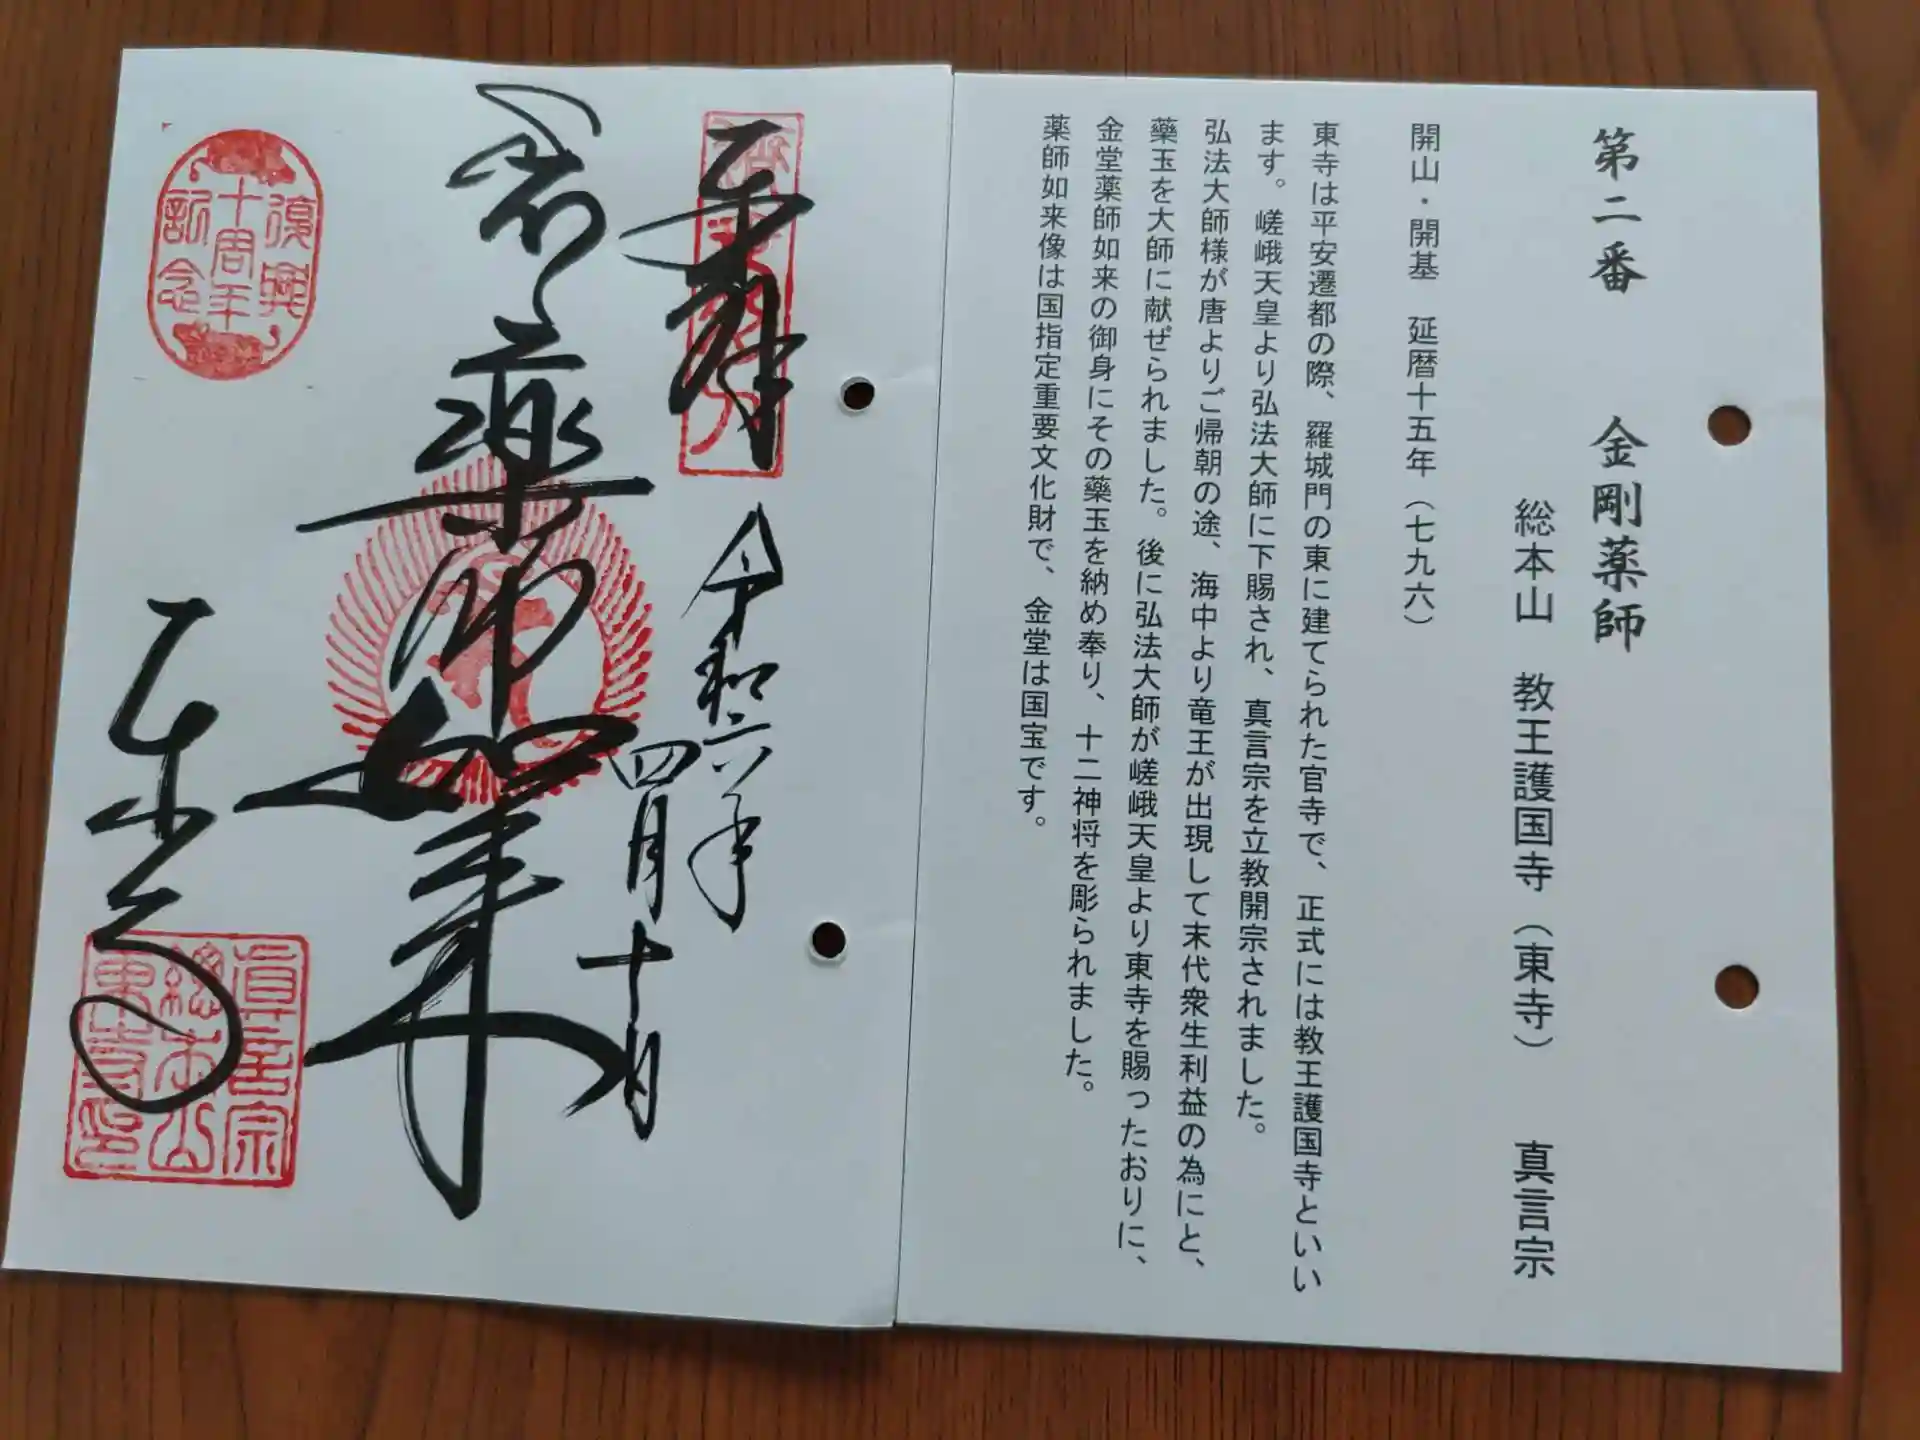 第二番 金剛薬師
総本山 教王護国寺（東寺） 真言宗
開山・開基 延暦十五年（七九六）
東寺は平安遷都の際、羅城門の東に建てられた官寺で、正式には教王護国寺といい
ます。嵯峨天皇より弘法大師に下賜され、真言宗を立教開宗されました。
弘法大師様が唐よりご帰朝の途、海中より竜王が出現して末代衆生利益の為にと、
藥玉を大師に献ぜられました。後に弘法大師が嵯峨天皇より東寺を賜ったおりに、
金堂薬師如来の御身にその藥玉を納め奉り、十二神将を彫られました。
薬師如来像は国指定重要文化財で、金堂は国宝です。
奉拝
令和六年
四月十日
薬師如来
復興
十周年
記念
東寺
真言宗
総本山
東寺印